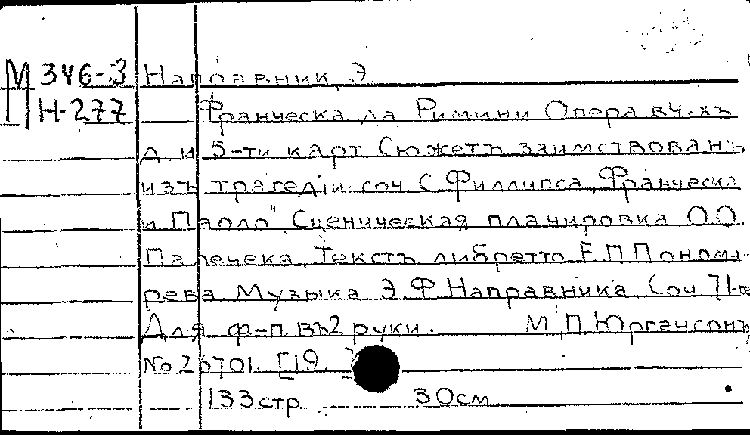 М 346-3 Направник, Э.
Н-277 Франческа да Римини Опера в 4-хъ
д. и 5-ти карт. Сюжетъ заимствованъ
изъ трагедіи соч. С. Филлипса „Франческа
и Паоло". Сценическая планировка О.О.
Палечека. Текстъ либретто Е.П. Понома-
рева Музыка Э.Ф. Направника. Соч. 71-е
Для ф-п. въ 2 руки. М., П. Юргенсонъ
No 26701. [19. ]
133 стр. 30 см